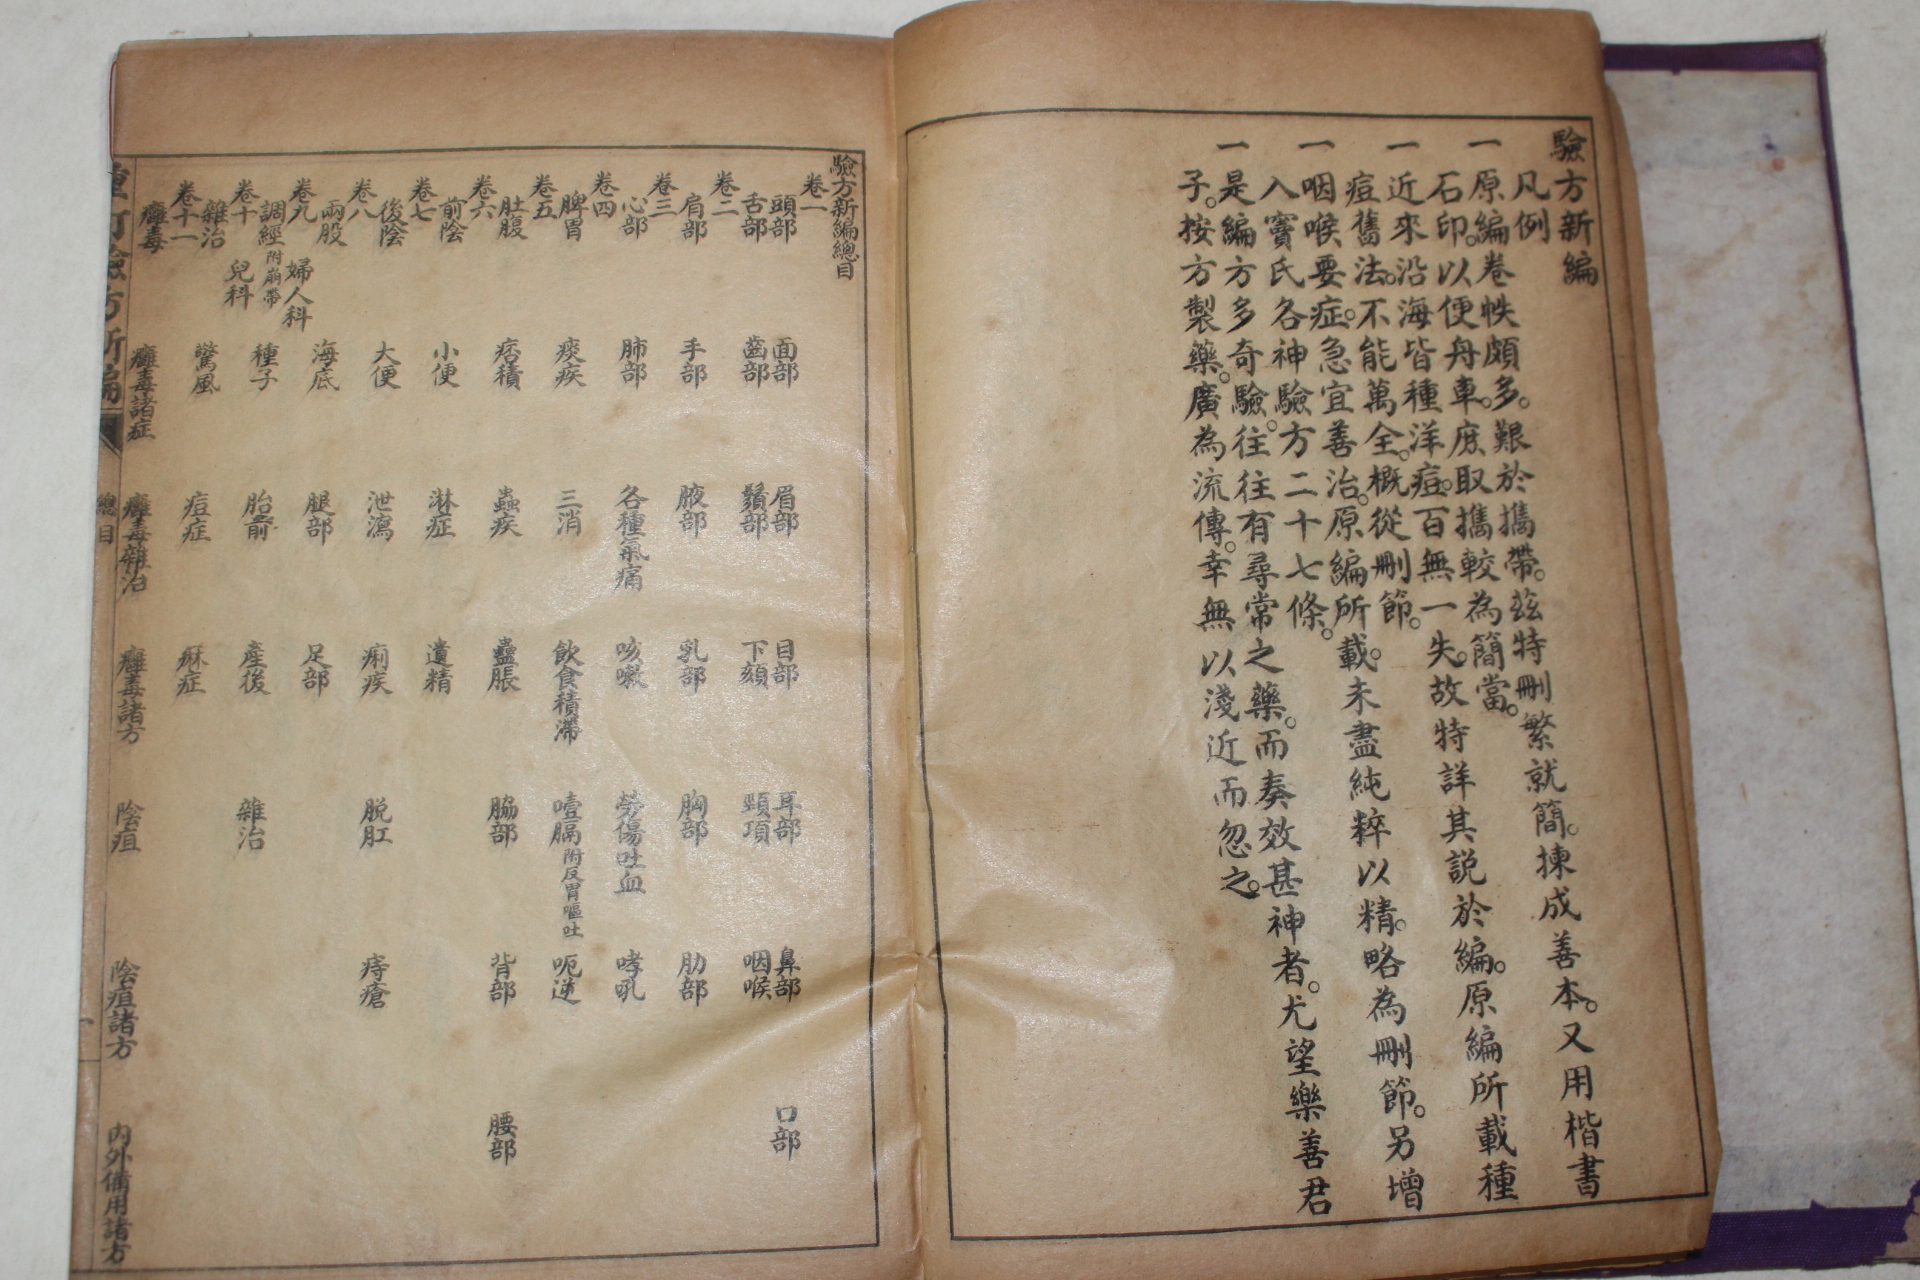 驗方新編
凡例
一原編卷帙頗多。艱於攜帶。茲特刪繁就簡。揀成善本。又用楷書
石印。以便舟車。庶取攜較為簡當。
一近來沿海皆種洋痘。百無一失。故特詳其説於編。原編所載種
痘舊法。不能萬全。概從刪節。
一咽喉要症。急宜善治。原編所載。未盡純粹以精。略為刪節。另增
入竇氏各神驗方二十七條。
一是編方多奇驗。往往有尋常之藥。而奏效甚神者。尤望樂善君
子。按方製藥。廣為流傳。幸無以淺近而忽之。
驗方新編總目
卷一
頭部 面部 眉部 目部 耳部 鼻部 口部
舌部 齒部 鬚部 下頦 頸項 咽喉
卷二
肩部 手部 腋部 乳部 胸部 肋部
卷三
心部 肺部 各種氣痛 咳嗽 勞傷吐血 哮吼
卷四
脾胃 痰疾 三消 飲食積滯 噎膈附反胃嘔吐 呃逆
卷五
肚腹 痞積 蟲疾 蠱脹 脇部 背部 腰部
卷六
前陰 小便 淋症 遺精
卷七
後陰 大便 泄瀉 痢疾 脱肛 痔瘡
卷八
兩股 海底 腿部 足部
卷九 婦人科
調經附崩帶 種子 胎前 產後 雜治
卷十 兒科
雜治 驚風 痘症 痳症
卷十一
癰毒 癰毒諸症 癰毒雜治 癰毒諸方 陰疽 陰疽諸方 內外備用諸方
重訂驗方新編 總目 一